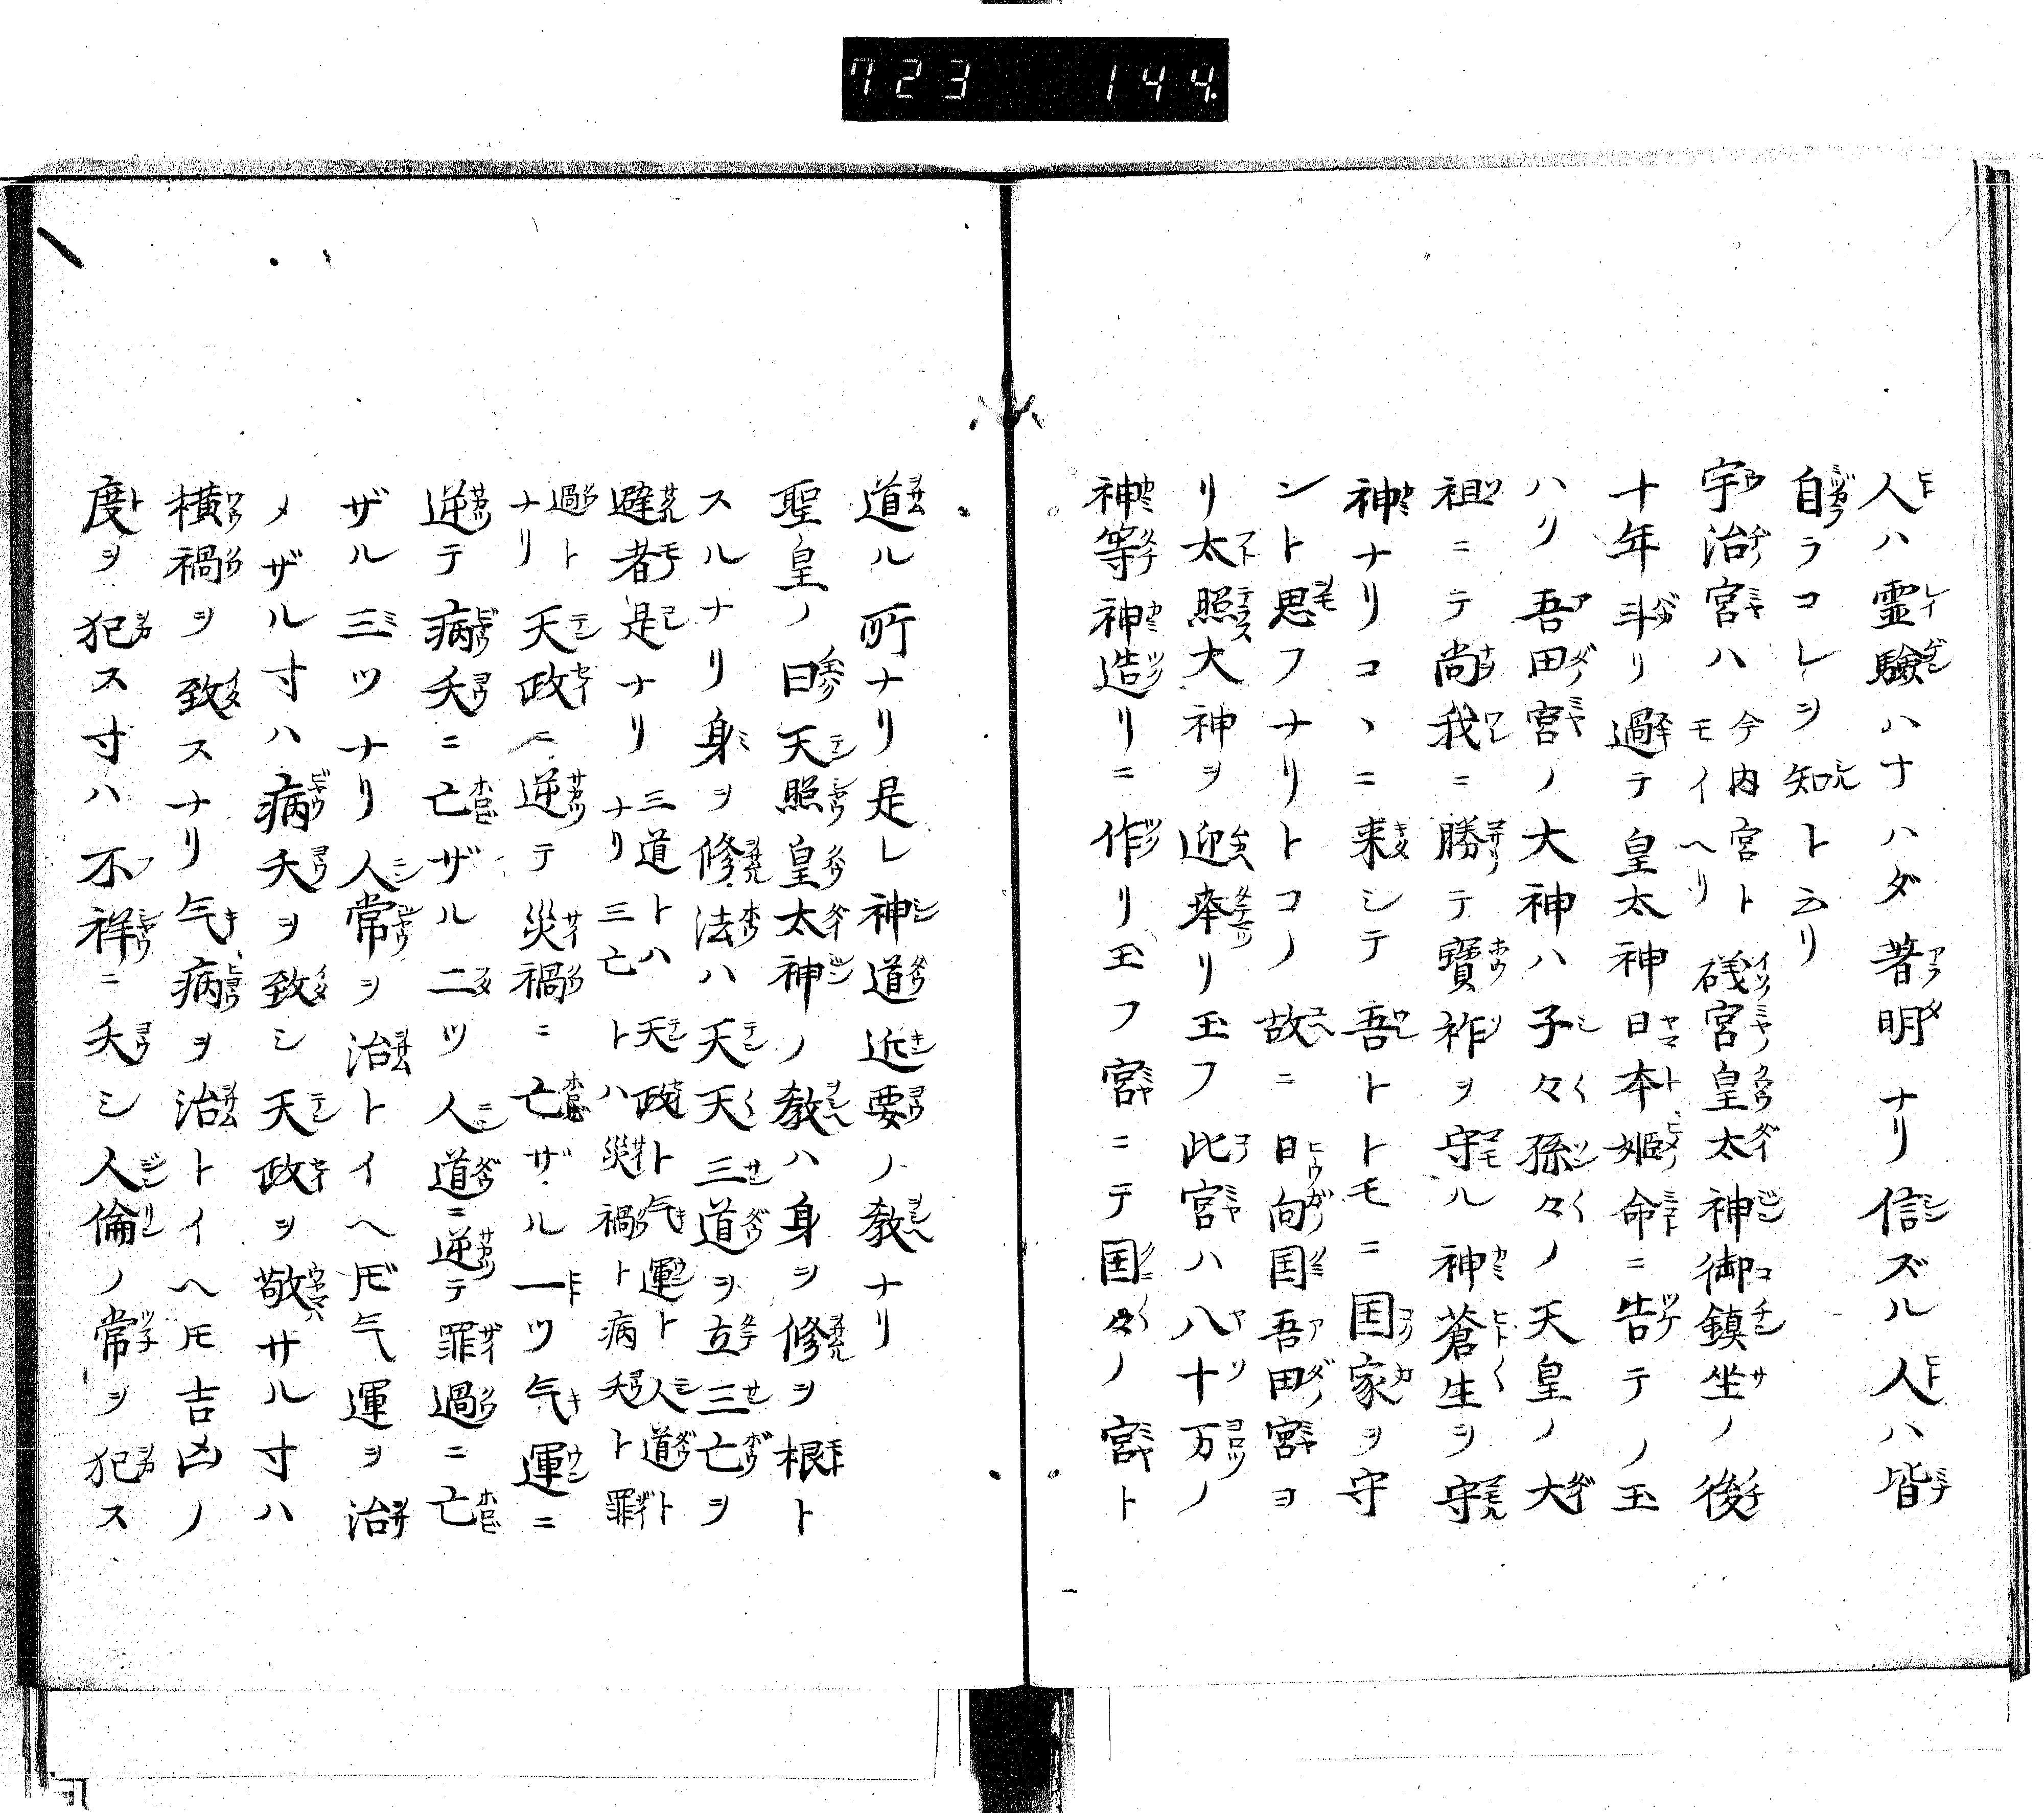 723 144.
人ハ霊験ハナハダ著明ナリ信ズル人ハ皆
自ラコレヲ知ト云リ
宇治宮ハ今内宮トモイヘリ 礒宮皇太神御鎮坐ノ後
十年斗リ過テ皇太神日本姫命ニ告テノ玉
ハリ吾田宮ノ大神ハ子々孫々ノ天皇ノ大
祖ニテ尚我ニ勝テ寶祚ヲ守ル神蒼生ヲ守
神ナリコヽニ来シテ吾トトモニ国家ヲ守
ント思フナリトコノ故ニ日向国吾田宮ヨ
リ太照大神ヲ迎奉リ玉フ此宮ハ八十万ノ
神等神造リニ作リ玉フ宮ニテ国々ノ宮ト
道ル所ナリ是レ神道近要ノ教ナリ
聖皇ノ曰天照皇太神ノ教ハ身ヲ修ヲ根ト
スルナリ身ヲ修法ハ天天三道ヲ立三亡ヲ
避者是ナリ 三道トハ天政ト気運ト人道ト
ナリ三亡トハ災禍ト病夭ト罪
過ト
ナリ 天政ニ逆テ災禍ニ亡ザル一ツ气運ニ
逆テ病夭ニ亡ザル二ツ人道ニ逆テ罪過ニ亡
ザル三ツナリ人常ヲ治トイヘ𪜈气運ヲ治
メザル寸ハ病夭ヲ致シ天政ヲ敬サル寸ハ
横禍ヲ致スナリ气病ヲ治トイヘ𪜈吉凶ノ
度ヲ犯ス寸ハ不祥ニ夭シ人倫ノ常ヲ犯ス